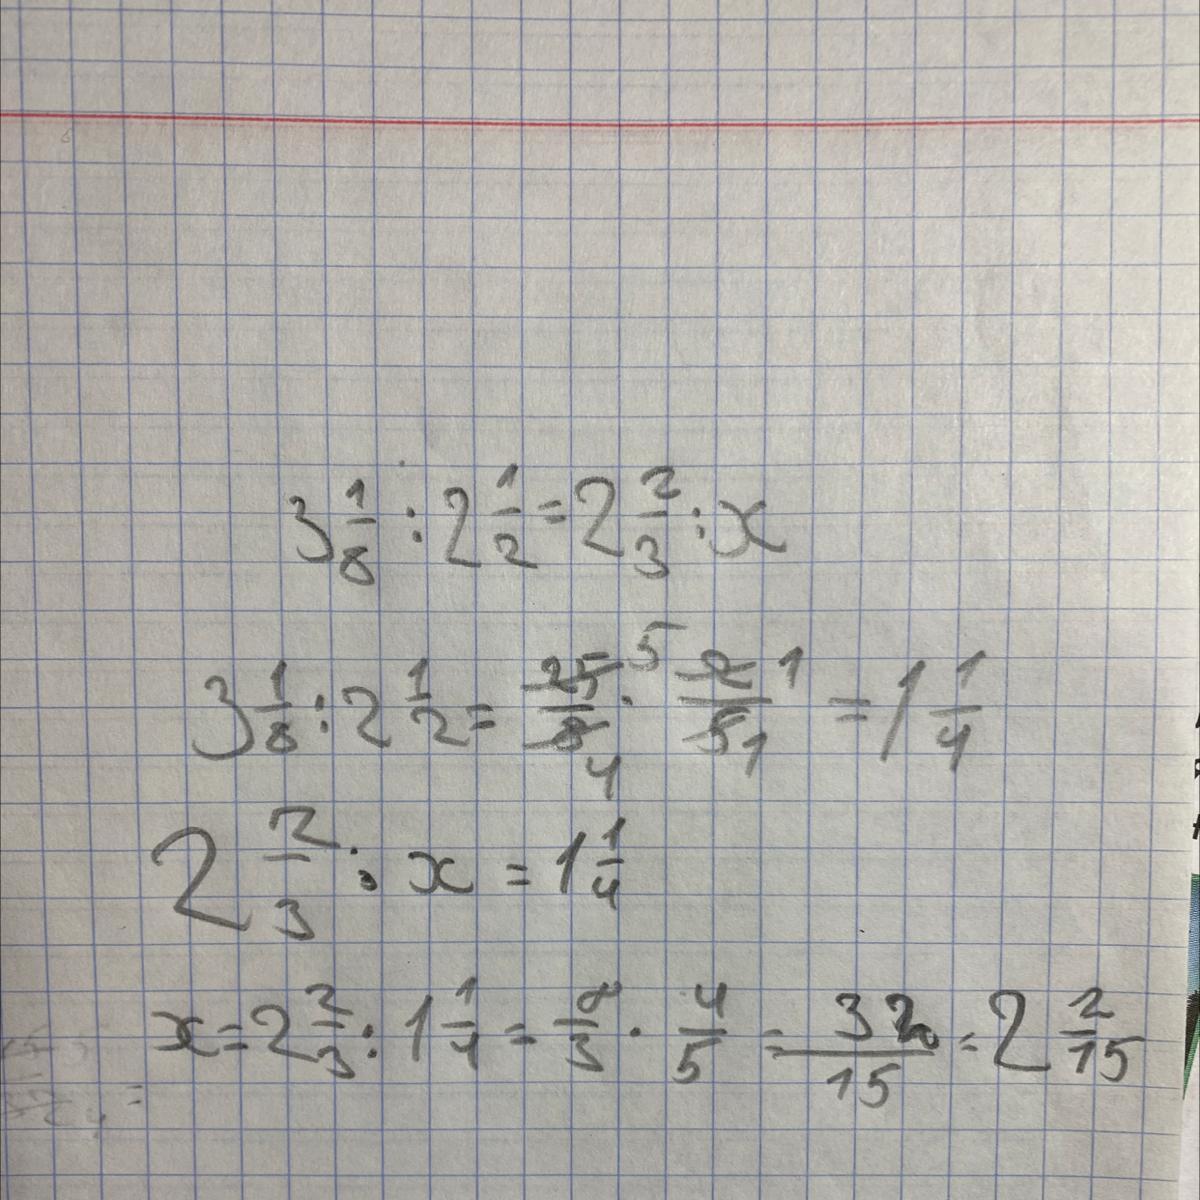 3 1/8 : 2 1/2 = 2 2/3 : x
3 1/8 : 2 1/2 = 25/8 5/4 · 2/5 1/1 = 1 1/4
2 2/3 : x = 1 1/4
x = 2 2/3 : 1 1/4 = 8/3 · 4/5 = 32/15 = 2 2/15
=